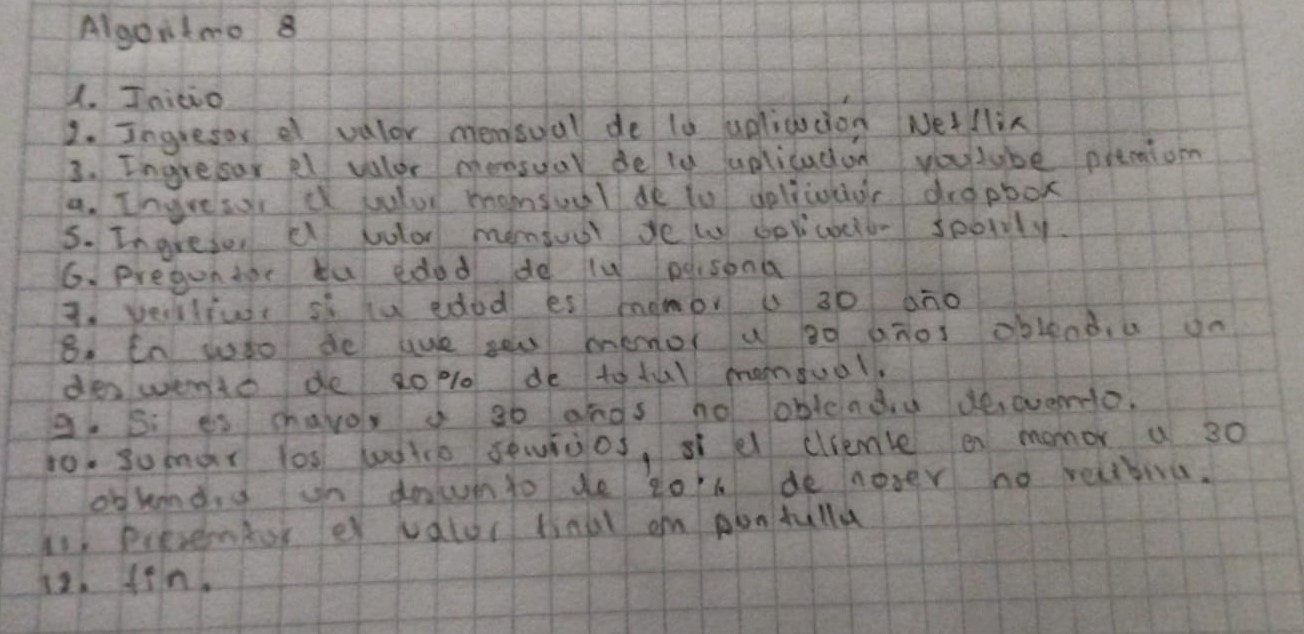 Algoritmo 8
1. Inicio
2. Ingresar el valor mensual de la aplicación Netflix
3. Ingresar el valor mensual de la aplicación youtube premiom
4. Ingresar el valor mensual de la aplicación dropbox
5. Ingresar el valor mensual de la aplicación spotify.
6. Preguntar la edad de la persona
7. verificar si la edad es menor a 30 año
8. En caso de que sea menor a 30 años obtendra un
descuento de 20% de total mensual.
9. Si es mayor a 30 años no obtendra descuento.
10. sumar los cuatro servicios, si el cliente es menor a 30
obtendra un descuento de 20% de noser no recibira.
11. Presentar el valor final en pantalla
12. fin.